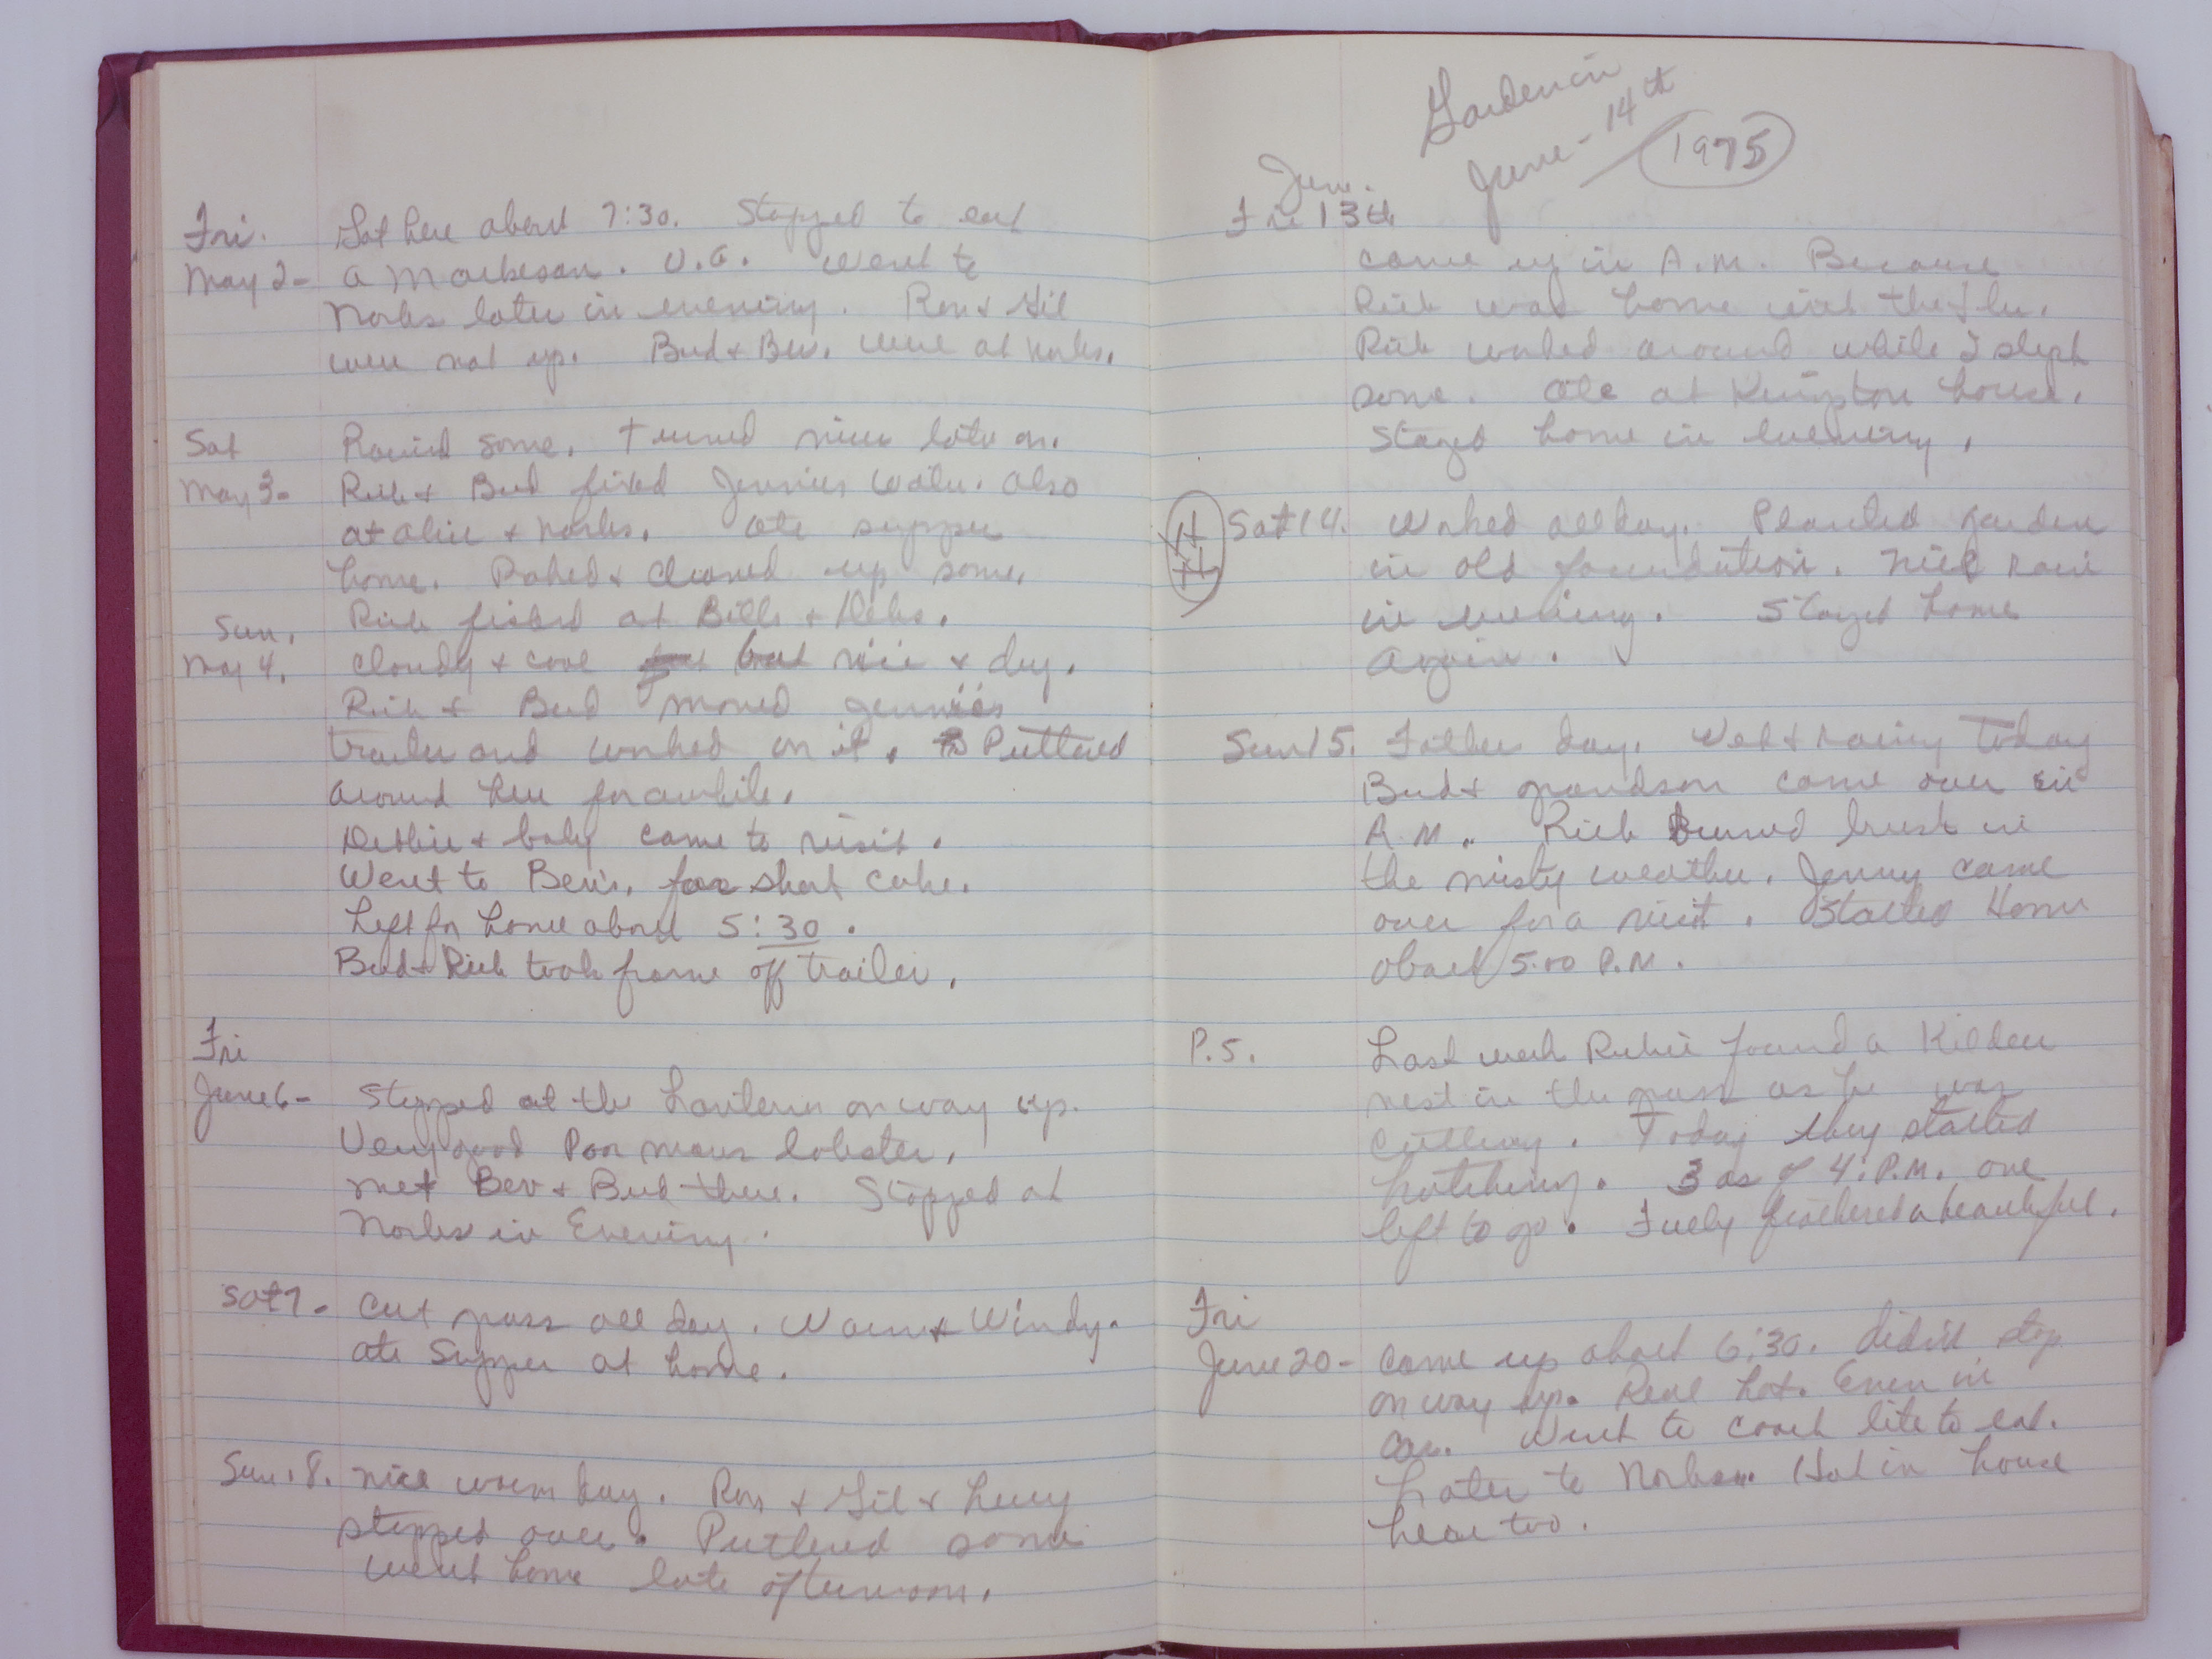 Fri. Got here about 7:30. Stopped to eat
May 2- a Markesan. V.G. Went to
Norbs later in evening. Ron & Gil
were not up. Bud + Bev. were at Norbs.
Sat Rained some. turned nice late on.
May 3- Rich + Bud fixed Jennies water. Also
at Alice + Norbs. Ate supper
home. Raked & cleaned up some.
Rich fished at Bills + Debs.
Sun.
May 4. Cloudy + cool but nice + dry.
Rich & Bud moved Jennies
trailer and worked on it. Puttered
around here for awhile.
Debbie + baby came to visit.
Went to Bev's. for short cake.
Left for home about 5:30.
Bud + Rich took frame off trailer.
Fri
June 6- Stopped at the Lantern on way up.
Very good Poor mans lobster.
met Bev + Bud there. Stopped at
Norbs in Evening.
Sat 7- Cut grass all day. Warm & Windy.
ate Supper at home.
Sun. 8. Nice warm day. Ron + Gil +
stopped over. Puttered some
went home late afternoon.
Garden in
June - 14th
1975
June.
Fri 13th
came up in A.M. Because
Rich was home with the flu.
Rich worked around while I slept
some. Ate at Kingston house.
Stayed home in evening.
Sat 14. Worked all day. Planted garden
in old foundation. Nice rain
in evening. Stayed home
again.
Sun 15. Fathers day. Wet & rainy today
Bud & grandson came over in
A.M. Rich Burned brush in
the misty weather. Jenny came
over for a visit. Started Home
about 5:00 P.M.
P.S. Last week Richie found a Kildeer
nest in the grass as he was
cutting. Today they started
hatching. 3 as of 4: P.M. one
left to go. Fully feathered & beautiful.
Fri
June 20- Came up about 6:30. Didn't stop
on way up. Real hot. Even in
car. Went to Coach lite to eat.
Later to Norbs. Hot in house
hear too.